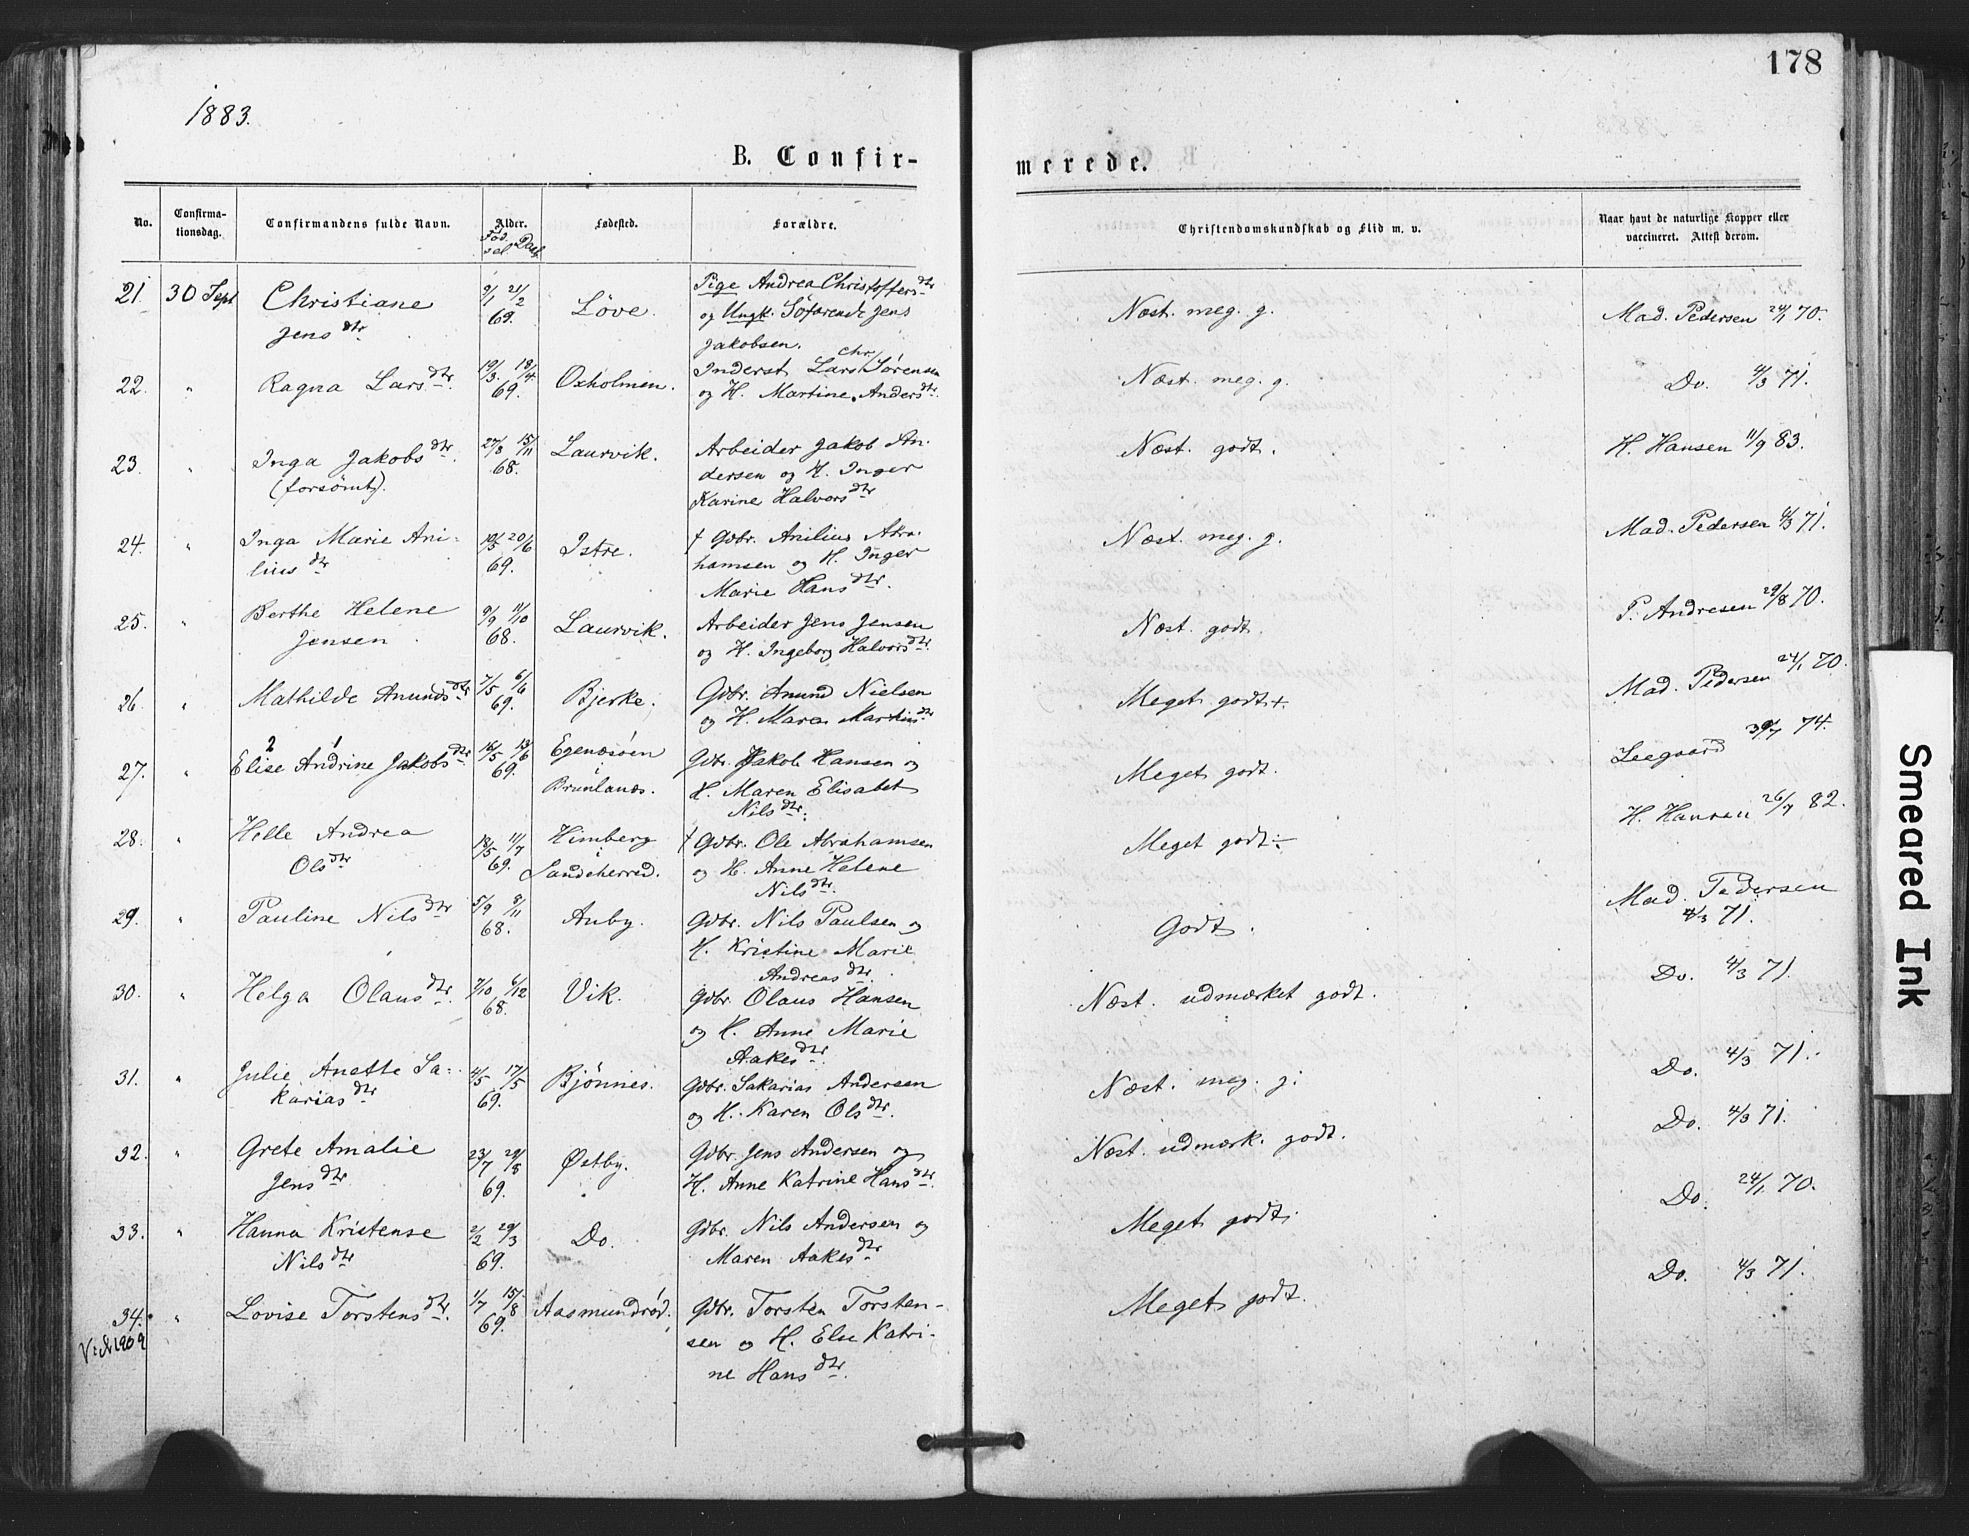 178
1883.
B. Confir-
merede.
No.
Confirma-
tionsdag.
Confirmandens fulde Navn.
Alder.
Fød-
sel. Daab.
Fødested.
Forældre.
Christendomskundskab og Flid m. v.
Naar havt de naturlige Kopper eller
vaccineret. Attest derom.
21. 30 Sept Christiane
Jensdtr
9/1 21/2
69.
Löve.
Pige Andrea Christoffersdtr
og Ungk. Söfarende Jens
Jakobsen.
Næst. meg. g.
Mad. Pedersen 24/1 70.
22. " Ragna Larsdtr.
19/3. 18/4
69.
Oxholmen.
Inderst Lars Chr. Sörensen
og H. Martine Andersdtr.
Næst. meg. g.
Do. 4/3 71.
23. " Inga Jakobsdtr.
(forsömt).
27/8 15/11
68.
Laurvik.
Arbeider Jakob An-
dersen og H. Inger
Karine Halvorsdtr
Næst. godt.
H. Hansen 11/9 83.
24. " Inga Marie Ani-
liusdtr
19/5 20/6
69.
Istre.
† Gdbr. Anilius Abra-
hamsen og H. Inger
Marie Hansdtr.
Næst. meg. g.
Mad. Pedersen 4/3 71.
25. " Berthe Helene
Jensen
9/9 11/10
68.
Laurvik.
Arbeider Jens Jensen
og H. Ingeborg Halvorsdtr.
Næst. godt.
P. Andresen 29/8 70.
26. " Mathilde Anundsdtr.
7/5 6/6
69.
Bjerke.
Gdbr. Anund Nielsen
og H. Maren Martinsdtr
Meget godt+.
Mad. Pedersen 24/1 70.
2 1
27. " Elise Andrine Jakobsdtr.
16/5 13/6
69.
Brunlanæs.
Gdbr. Jakob Hansen og
H. Maren Elisabet
Nilsdtr.
Meget godt.
Leegaard 74.
28. " Helle Andrea
Olsdtr
18/5 11/7
69.
Himberg
Sandeherred.
† Gdbr. Ole Abrahamsen
og H. Anne Helene
Nilsdtr.
Meget godt÷
H. Hansen 26/7 82.
29. " Pauline Nilsdtr
5/9 8/11
68.
Auby.
Gdbr. Nils Paulsen og
H. Kristine Marie
Andreasdtr.
Godt.
Mad. Pedersen
4/3 71.
30. " Helga Olausdtr.
7/10 6/12
68.
Vik.
Gdbr. Olaus Hansen
og H. Anne Marie
Aakesdtr.
Næst. udmærket godt.
Do. 4/3 71.
31. " Julie Anette Sa-
kariasdtr
4/5 17/5
69.
Bjönnes.
Gdbr. Sakarias Andersen
og H. Karen Olsdtr.
Næst. meg. g.
Do. 4/3 71.
32. " Grete Amalie
Jensdtr
23/7 29/8
69.
Østby.
Gdbr. Jens Andersen og
H. Anne Katrine Hansdtr.
Næst. udmærk. godt.
Do. 4/3 71.
33. " Hanna Kristense
Nilsdtr
2/2 29/3
69.
Do.
Gdbr. Nils Andersen og
Maren Aakesdtr
Meget godt.
Do. 24/1 70.
34. " Lovise Torstensdtr.
1/7 15/8
69.
Aasmundröd.
Gdbr. Torsten Torsten-
sen og H. Else Katri-
ne Hansdtr.
Meget godt.
Do. 4/3 71.
1909
Smeared Ink